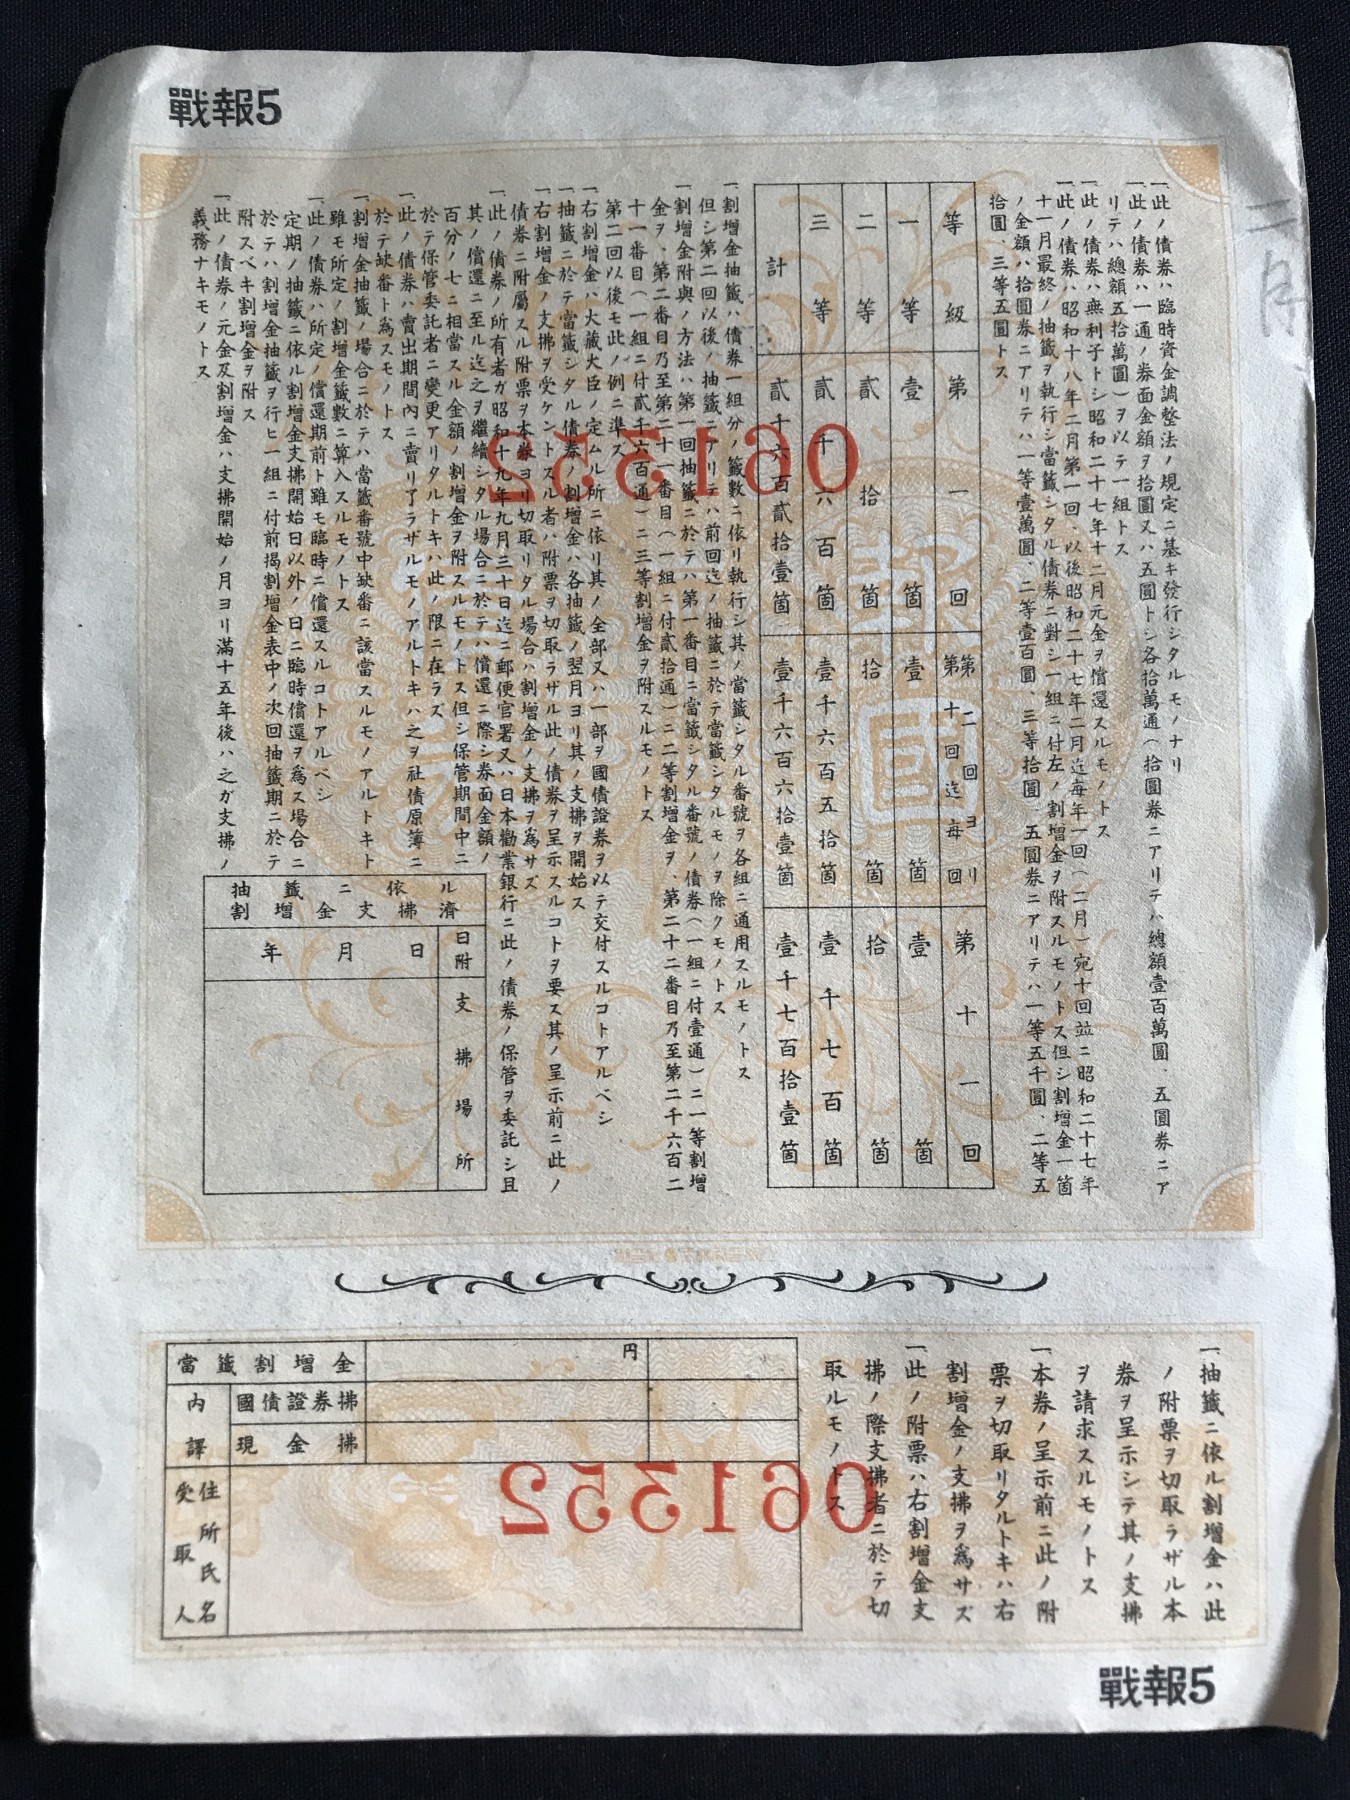 戰報5
一此ノ債券ハ臨時資金調整法ノ規定ニ基キ發行シタルモノナリ
一此ノ債券ハ一通ノ券面金額ヲ拾圓又ハ五圓トシ各拾萬通（拾圓券ニアリテハ總額壹百萬圓、五圓券ニア
リテハ總額五拾萬圓）ヲ以テ一組トス
一此ノ債券ハ無利子トシ昭和二十七年十二月元金ヲ償還スルモノトス
一此ノ債券ハ昭和十八年二月第一回、以後昭和二十七年二月迄每年一回（二月）宛十回竝ニ昭和二十七年
十一月最終ノ抽籤ヲ執行シ當籤シタル債券ニ對シ一組ニ付左ノ割增金ヲ附スルモノトス但シ割增金一箇
ノ金額ハ拾圓券ニアリテハ一等壹萬圓、二等壹百圓、三等拾圓　五圓券ニアリテハ一等五千圓、二等五
拾圓、三等五圓トス
等級　第一回　第二回ヨリ第十回迄每回　第十一回
一等　壹箇　壹箇　壹箇
二等　貳拾箇　拾箇　拾箇
三等　貳千六百箇　壹千六百五拾箇　壹千七百箇
計　貳千六百貳拾壹箇　壹千六百六拾壹箇　壹千七百拾壹箇
一割增金抽籤ハ債券一組分ノ籤數ニ依リ執行シ其ノ當籤シタル番號ヲ各組ニ通用スルモノトス
但シ第二回以後ノ抽籤ニアリテハ前回迄ノ抽籤ニ於テ當籤シタルモノヲ除クモノトス
一割增金附與ノ方法ハ第一回抽籤ニ於テハ第一番目ニ當籤シタル番號ノ債券（一組ニ付壹通）ニ一等割增
金ヲ、第二番目乃至第二十一番目（一組ニ付貳拾通）ニ二等割增金ヲ、第二十二番目乃至第二千六百二
十一番目（一組ニ付貳千六百通）ニ三等割增金ヲ附スルモノトス
第二回以後モ此ノ例ニ準ス
一右割增金ハ大藏大臣ノ定ムル所ニ依リ其ノ全部又ハ一部ヲ國債證券ヲ以テ交付スルコトアルベシ
一抽籤ニ於テ當籤シタル債券ノ割增金ハ各抽籤ノ翌月ヨリ其ノ支拂ヲ開始ス
一右割增金ノ支拂ヲ受ケントスル者ハ附票ヲ切取ラザル此ノ債券ヲ呈示スルコトヲ要ス其ノ呈示前ニ此ノ
債券ニ附屬スル附票ヲ本券ヨリ切取リタル場合ハ割增金ノ支拂ヲ爲サズ
一此ノ債券ノ所有者ガ昭和十九年九月三十日迄ニ郵便官署又ハ日本勸業銀行ニ此ノ債券ノ保管ヲ委託シ且
其ノ償還ニ至ル迄之ヲ繼續シタル場合ニ於テハ償還ニ際シ券面金額ノ
百分ノ七ニ相當スル金額ノ割增金ヲ附スルモノトス但シ保管期間中ニ
於テ保管委託者ニ變更アリタルトキハ此ノ限ニ在ラズ
一此ノ債券ハ賣出期間內ニ賣リ了ラザルモノアルトキハ之ヲ社債原簿ニ
於テ缺番ト爲スモノトス
一割增金抽籤ノ場合ニ於テハ當籤番號中缺番ニ該當スルモノアルトキト
雖モ所定ノ割增金籤數ニ算入スルモノトス
一此ノ債券ハ所定ノ償還期前ト雖モ臨時ニ償還スルコトアルベシ
定期ノ抽籤ニ依ル割增金支拂開始日以外ノ日ニ臨時償還ヲ爲ス場合ニ
於テハ割增金抽籤ヲ行ヒ一組ニ付前揭割增金表中ノ次回抽籤期ニ於テ
附スベキ割增金ヲ附ス
一此ノ債券ノ元金及割增金ハ支拂開始ノ月ヨリ滿十五年後ハ之ガ支拂ノ
義務ナキモノトス
抽籤ニ依ル
割增金支拂濟
日附　年　月　日
支拂場所
0613552
一抽籤ニ依ル割增金ハ此
ノ附票ヲ切取ラザル本
券ヲ呈示シテ其ノ支拂
ヲ請求スルモノトス
一本券ノ呈示前ニ此ノ附
票ヲ切取リタルトキハ右
割增金ノ支拂ヲ爲サズ
一此ノ附票ハ右割增金支
拂ノ際支拂者ニ於テ切
取ルモノトス
當籤割增金　円
內譯　國債證券拂
現金拂
受取人　住所氏名
0613552
戰報5